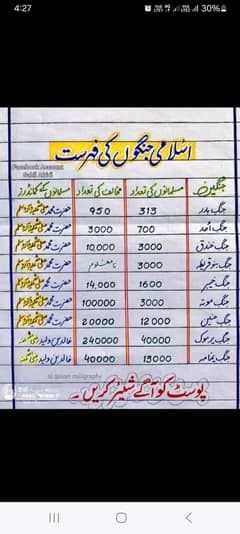 4:27
30%
اسلامی جنگوں کی فہرست
جنگیں مسلمانوں کی تعداد مخالف کی تعداد مسلمانوں کے کمانڈرز
جنگ بدر 313 950 حضرت محمد صلی اللہ علیہ وآلہ وسلم
جنگ احد 700 3000 حضرت محمد صلی اللہ علیہ وآلہ وسلم
جنگ خندق 3000 10,000 حضرت محمد صلی اللہ علیہ وآلہ وسلم
جنگ بنو قریظہ 3000 نامعلوم حضرت محمد صلی اللہ علیہ وآلہ وسلم
جنگ خیبر 1600 14,000 حضرت محمد صلی اللہ علیہ وآلہ وسلم
جنگ موتہ 3000 100000 حضرت محمد صلی اللہ علیہ وآلہ وسلم
جنگ حنین 12000 20000 حضرت محمد صلی اللہ علیہ وآلہ وسلم
جنگ یرموک 40000 240000 خالد بن ولید رضی اللہ عنہ
جنگ یمامہ 13000 40000 خالد بن ولید رضی اللہ عنہ
پوسٹ کو آگے شیئر کریں۔